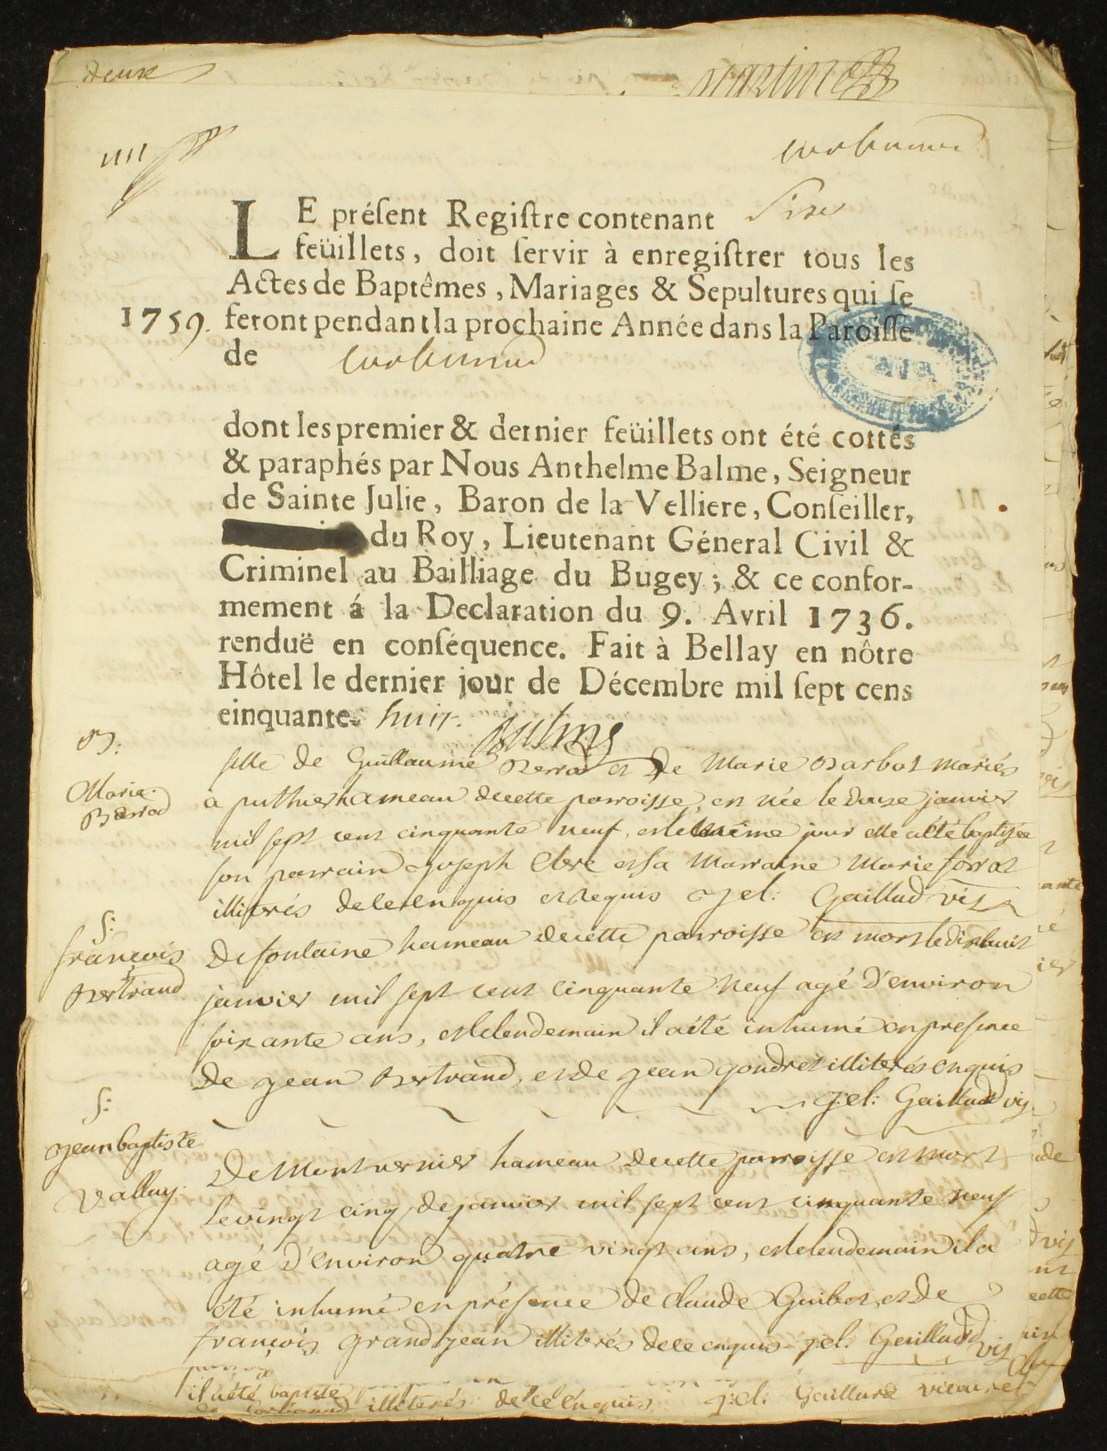 deux
Corbonod
Six
LE préſent Regiſtre contenant
feüillets, doit ſervir à enregiſtrer tous les
Actes de Baptêmes, Mariages & Sepultures qui ſe
1759. feront pendant la prochaine Année dans la Paroiſſe
de Corbonod
dont les premier & dernier feüillets ont été cottés
& paraphés par Nous Anthelme Balme, Seigneur
de Sainte Julie, Baron de la Velliere, Conſeiller,
du Roy, Lieutenant Géneral Civil &
Criminel au Bailliage du Bugey ; & ce confor-
mement á la Declaration du 9. Avril 1736.
renduë en conſéquence. Fait à Bellay en nôtre
Hôtel le dernier jour de Décembre mil ſept cens
cinquante. huit. Balme
B:
Marie
Berrod
fille de Guillaume Berrod et de Marie Barbot mariés
a puthier hameau de cette parroisse, est née le douze janvier
mil sept cent cinquante neuf, et le même jour elle a été baptisée
son parrain joseph et sa Marraine Marie
illiterés de ce enquis et requis Gaillard vic
S:
françois
Bertrand
De fontaine hameau de cette parroisse est mort le dixhuit
janvier mil sept cent cinquante neuf agé d'environ
soixante ans, et le lendemain il a été inhumé en presence
de jean Bertrand, et de jean gondret illiterés enquis
Gaillard vic
S:
jean baptiste
Valluy
De Montvernier hameau de cette parroisse est mort
le vingt cinq de janvier mil sept cent cinquante neuf
agé d'environ quatre vingt ans, et le lendemain il a
été inhumé en présence de claude Guibot et de
françois grandjean illiterés de ce enquis Gaillard vic
il a été baptisé
illiterés de ce enquis Gaillard vicaire